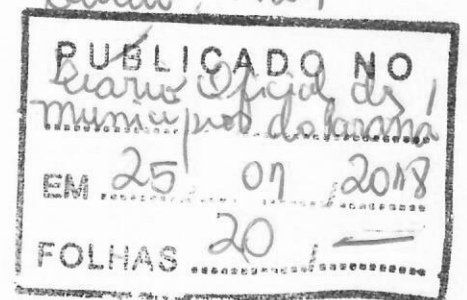 PUBLICADO NO
Diário Oficial ds
Municípios do Paraná
EM 25 / 07 / 2018
FOLHAS 20 / —